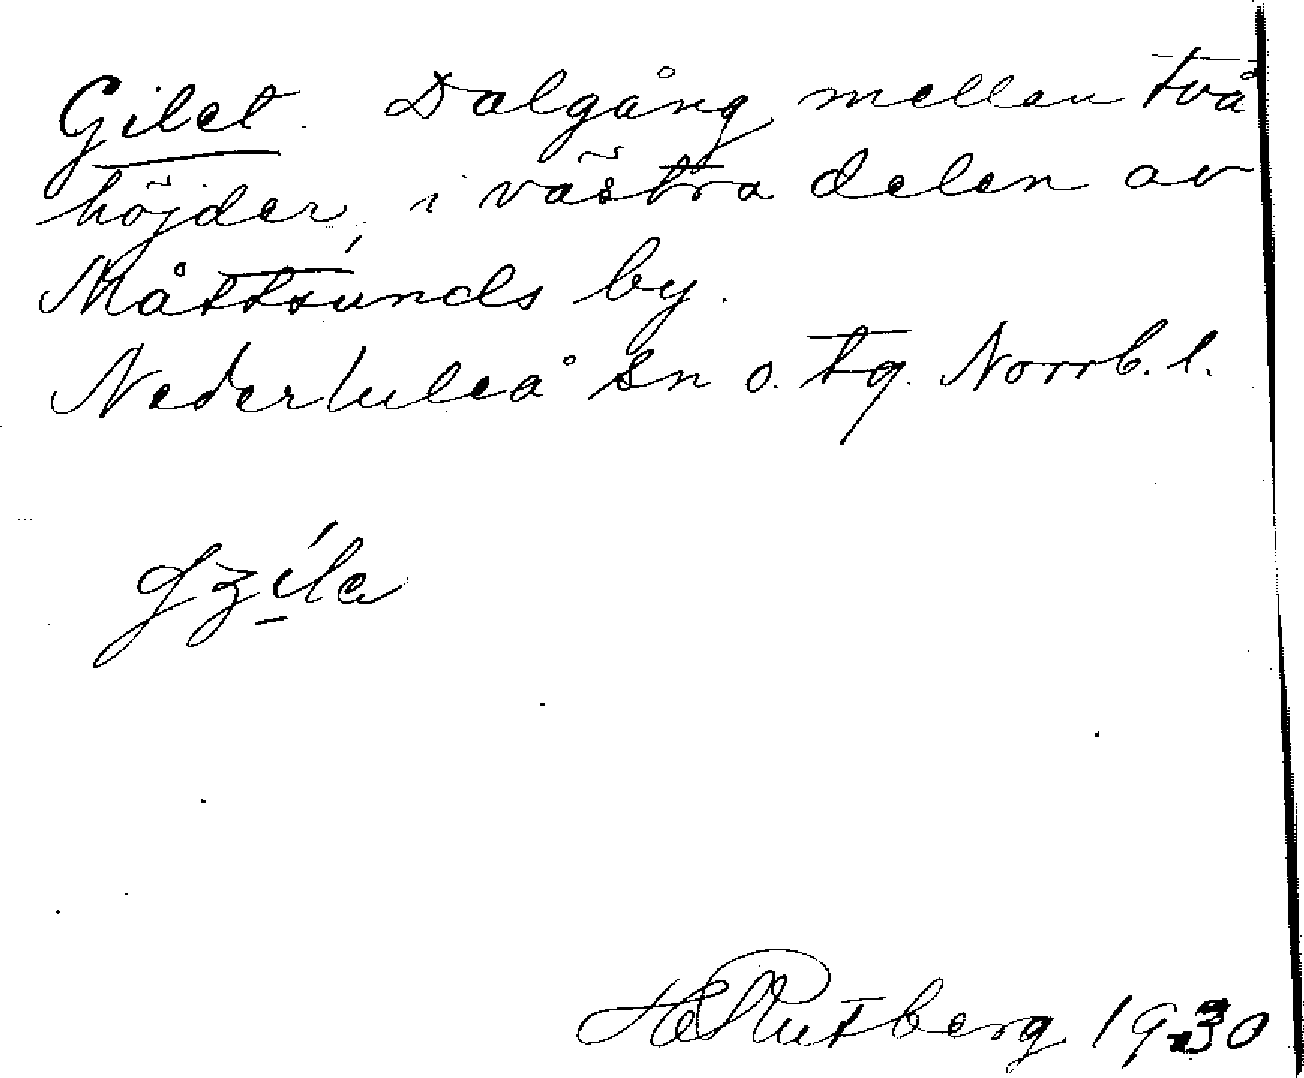 Gilet. Dalgång mellan två
höjder, i västra delen av
Måttsunds by.
Nederluleå sn o. tg. Norrb. l.
Herutberg 1930